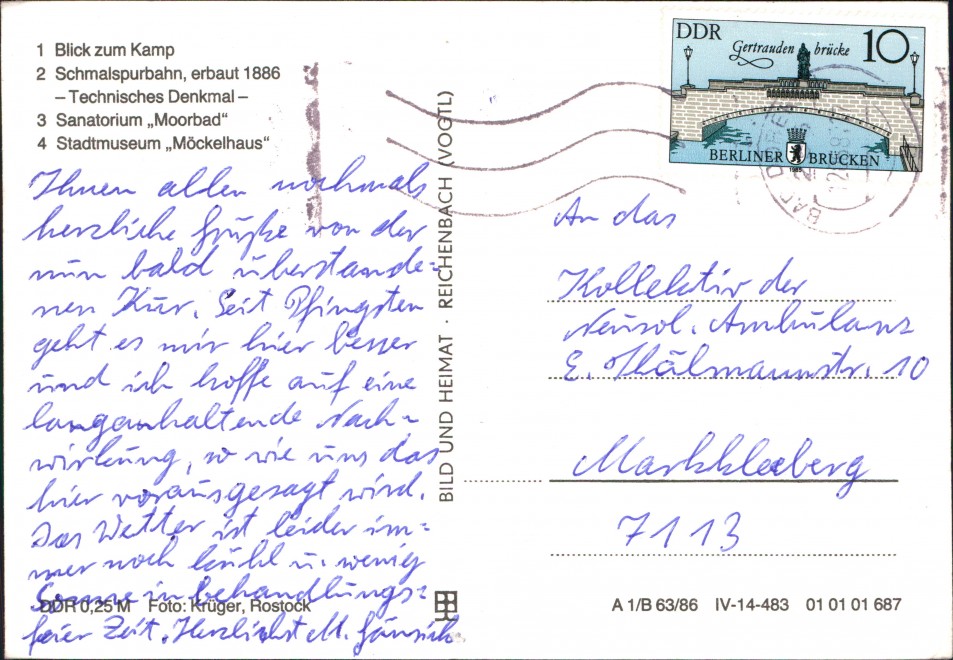 1 Blick zum Kamp
2 Schmalspurbahn, erbaut 1886
– Technisches Denkmal –
3 Sanatorium „Moorbad"
4 Stadtmuseum „Möckelhaus"
Ihnen allen nochmals
herzliche Grüße von der
nun bald überstande=
nen Kur. Seit Pfingsten
geht es mir hier besser
und ich hoffe auf eine
langanhaltende Nach-
wirkung, so wie uns das
hier vorausgesagt wird.
Das Wetter ist leider im=
mer noch kühl u. wenig
Sonne in behandlungs=
freier Zeit. Herzlichst M.
DDR 0,25 M Foto: Krüger, Rostock
BILD UND HEIMAT · REICHENBACH (VOGTL)
DDR
Gertrauden brücke
10
BERLINER BRÜCKEN
BAD
An das
Kollektiv der
Neurol. Ambulanz
E. Thälmannstr. 10
Markkleeberg
7113
A 1/B 63/86 IV-14-483 01 01 01 687